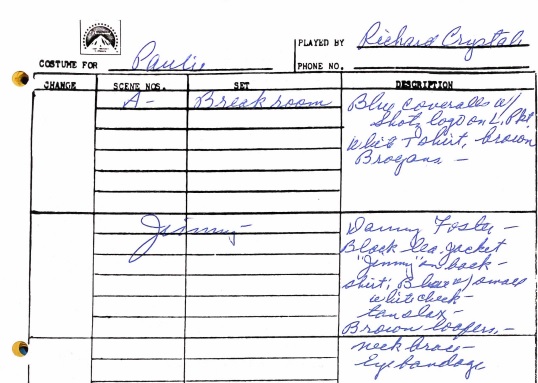 PLAYED BY Richard Crystal
COSTUME FOR Paulie
PHONE NO.
CHANGE SCENE NOS. SET DESCRIPTION
A- Breakroom Blue coveralls w/
Shotz logo on L. Pkt
White T shirt, brown
Brogans -
Jimmy - Danny Foster -
Black lea. jacket
"Jimmy" on back -
shirt, Blue w/ small
white check -
tan slax -
Brown loafers, -
neck brace -
Eye bandage